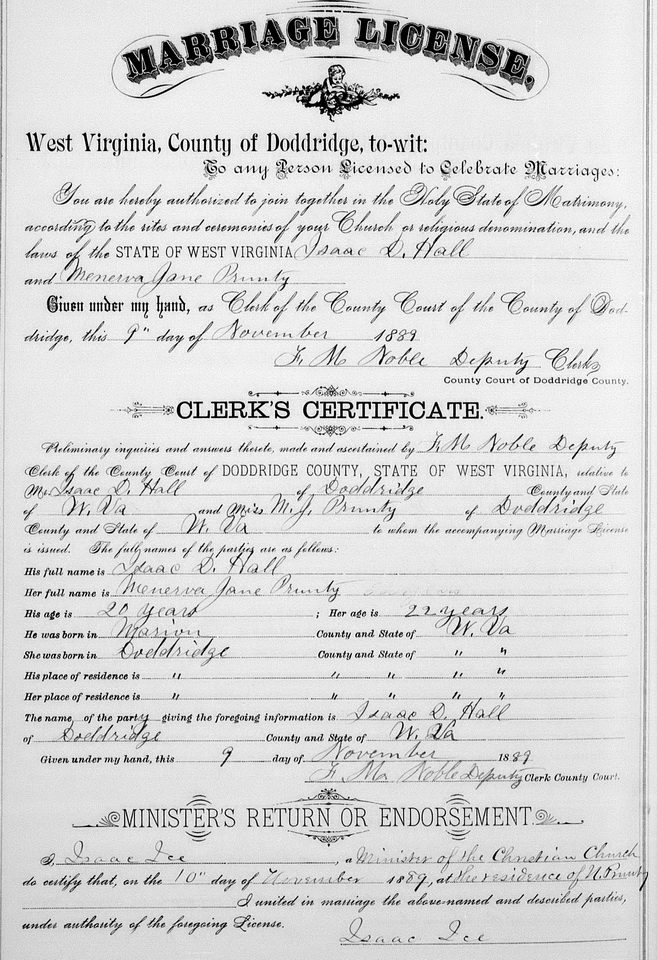 MARRIAGE LICENSE.
West Virginia, County of Doddridge, to-wit:
To any Person Licensed to Celebrate Marriages:
You are hereby authorized to join together in the Holy State of Matrimony,
according to the rites and ceremonies of your Church or religious denomination, and the
laws of the STATE OF WEST VIRGINIA Isaac D. Hall
and Menerva Jane Prunty
Given under my hand, as Clerk of the County Court of the County of Dod-
dridge, this 9" day of November 1889
F. M Noble Deputy Clerk
County Court of Doddridge County.
CLERK'S CERTIFICATE.
Preliminary inquiries and answers thereto, made and ascertained by F. M Noble Deputy
Clerk of the County Court of DODDRIDGE COUNTY, STATE OF WEST VIRGINIA, relative to
Mr. Isaac D. Hall of Doddridge County and State
of W. Va and Miss M. J. Prunty of Doddridge
County and State of W. Va to whom the accompanying Marriage License
is issued. The full names of the parties are as follows:
His full name is Isaac D. Hall
Her full name is Menerva Jane Prunty
His age is 20 years ; Her age is 22 years
He was born in Marion County and State of W. Va
She was born in Doddridge County and State of " "
His place of residence is " " " " "
Her place of residence is " " " " "
The name of the party giving the foregoing information is Isaac D. Hall
of Doddridge County and State of W. Va
Given under my hand, this 9 day of November 1889
F. M. Noble Deputy Clerk County Court.
MINISTER'S RETURN OR ENDORSEMENT.
I, Isaac Ice, a Minister of the Christian Church
do certify that, on the 10" day of November 1889, at the residence of Prunty
I united in marriage the above-named and described parties,
under authority of the foregoing License.
Isaac Ice